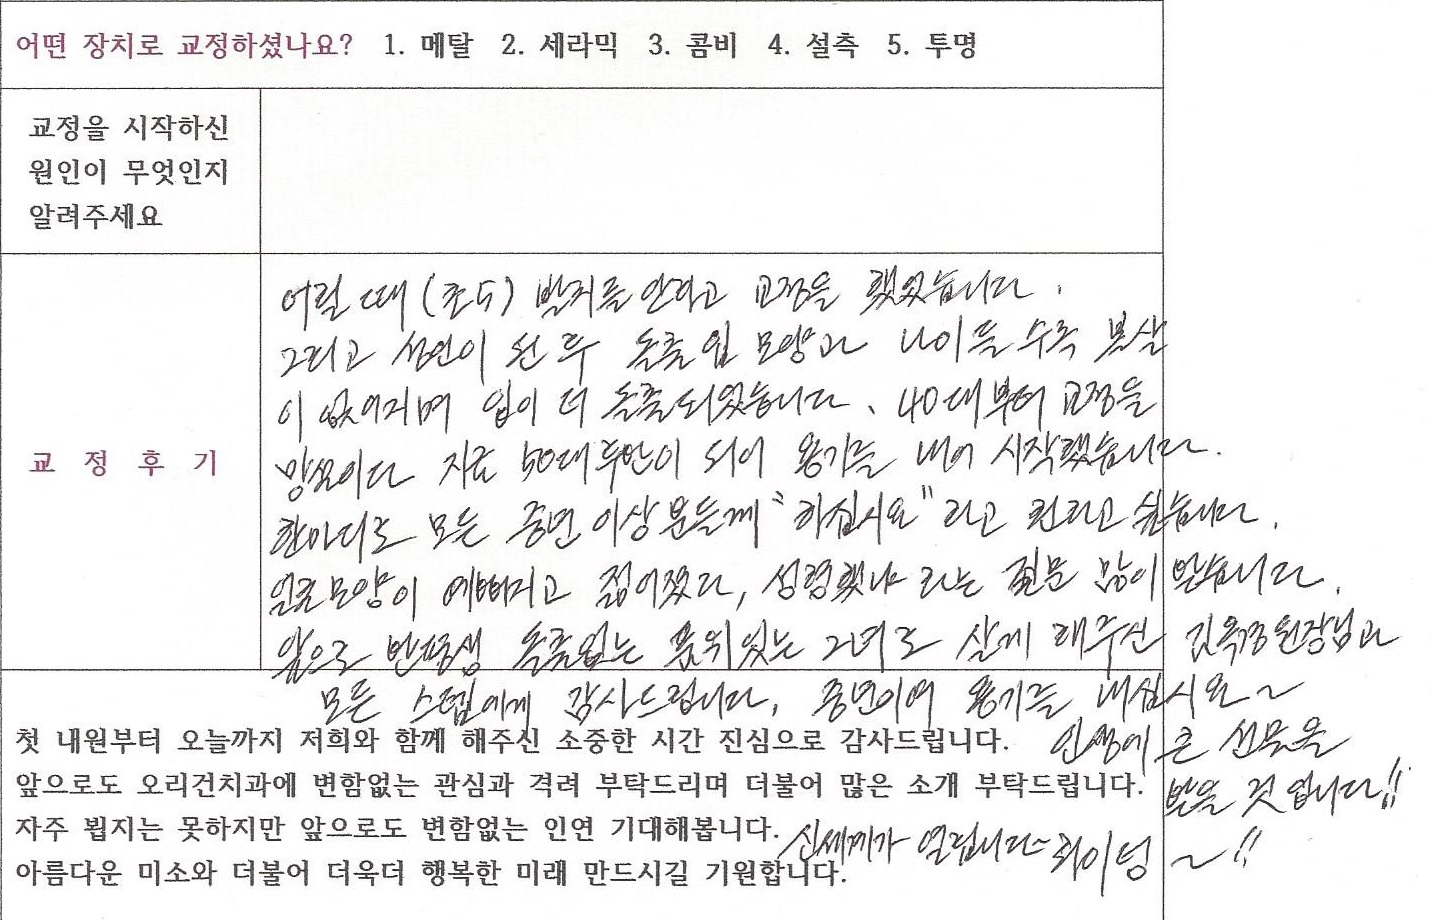 어떤 장치로 교정하셨나요? 1. 메탈 2. 세라믹 3. 콤비 4. 설측 5. 투명
교정을 시작하신
원인이 무엇인지
알려주세요
교 정 후 기
어릴 때 (초5) 발치를 안하고 교정을 했었습니다.
그리고 성인이 된 후 돌출입 모양과 나이들수록 볼살
이 없어지며 입이 더 돌출되었습니다. 40대부터 교정을
망설이다 지금 50대후반이 되어 용기를 내어 시작했습니다.
한마디로 모든 중년 이상분들께 "하십시요" 라고 권하고 싶습니다.
얼굴모양이 예뻐지고 젊어졌다, 성형했냐 라는 질문 많이 받습니다.
앞으로 반평생 돌출없는 품위있는 그녀로 살게 해주신 김옥경원장님과
모든 스텝에게 감사드립니다. 중년이여 용기를 내십시요~
인생에 큰 선물을
받을 것 입니다!!
신세계가 열립니다~ 화이팅 ~!!
첫 내원부터 오늘까지 저희와 함께 해주신 소중한 시간 진심으로 감사드립니다.
앞으로도 오리건치과에 변함없는 관심과 격려 부탁드리며 더불어 많은 소개 부탁드립니다.
자주 뵙지는 못하지만 앞으로도 변함없는 인연 기대해봅니다.
아름다운 미소와 더불어 더욱더 행복한 미래 만드시길 기원합니다.